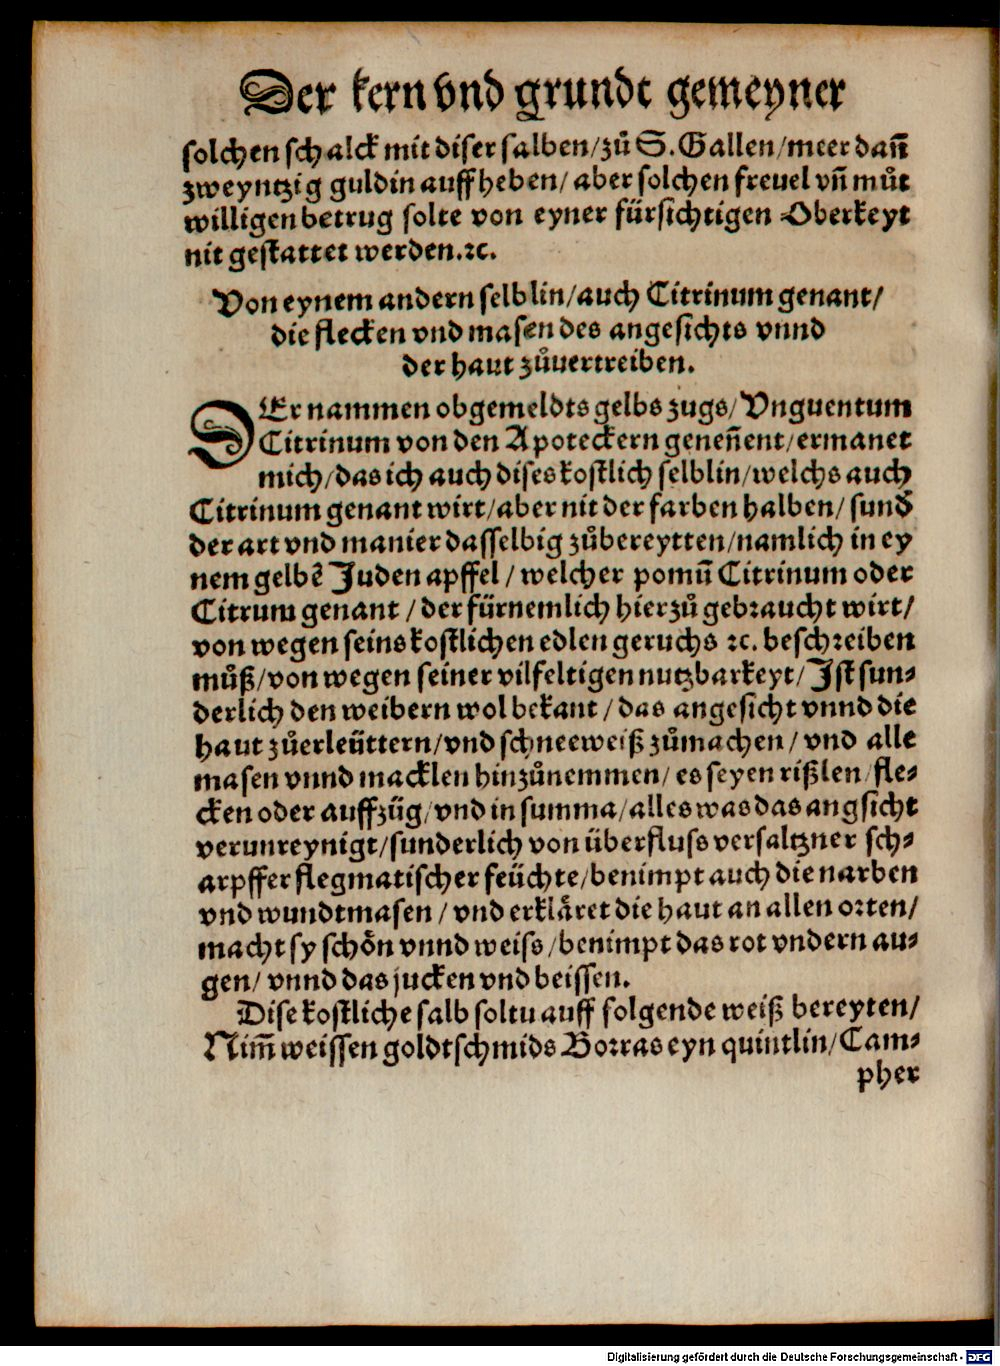 Der kern vnd grundt gemeyner
solchen schalck mit diser salben/zů S. Gallen/meer dañ
zweyntzig guldin auffheben/ aber solchen freuel vñ můt
willigen betrug solte von eyner fürsichtigen Oberkeyt
nit gestattet werden.ꝛc.
Von eynem andern selblin/auch Citrinum genant/
die flecken vnd masen des angesichts vnnd
der haut zůuertreiben.
DEr nammen obgemeldts gelbs zugs/ Vnguentum
Citrinum von den Apoteckern geneñent/ermanet
mich/das ich auch dises kostlich selblin/welchs auch
Citrinum genant wirt/aber nit der farben halben/ sund̃
der art vnd manier dasselbig zůbereytten/namlich in ey
nem gelbẽ Juden apffel / welcher pomũ Citrinum oder
Citrum genant / der fürnemlich hierzů gebraucht wirt/
von wegen seins kostlichen edlen geruchs ꝛc. beschreiben
můß/von wegen seiner vilfeltigen nutzbarkeyt/ Jst sun⸗
derlich den weibern wol bekant / das angesicht vnnd die
haut zůerleüttern/vnd schneeweiß zůmachen / vnd alle
masen vnnd macklen hinzůnemmen/ es seyen rißlen/fle⸗
cken oder auffzüg/vnd in summa/alles was das angsicht
verunreynigt/sunderlich von überfluss versaltzner sch⸗
arpffer flegmatischer feüchte/benimpt auch die narben
vnd wundtmasen / vnd erkläret die haut an allen orten/
macht sy schön vnnd weiss/benimpt das rot vndern au⸗
gen/ vnnd das jucken vnd beissen.
Dise kostliche salb soltu auff folgende weiß bereyten/
Nim̃ weissen goldtschmids Borras eyn quintlin/Cam⸗
pher
Digitalisierung gefördert durch die Deutsche Forschungsgemeinschaft - DFG